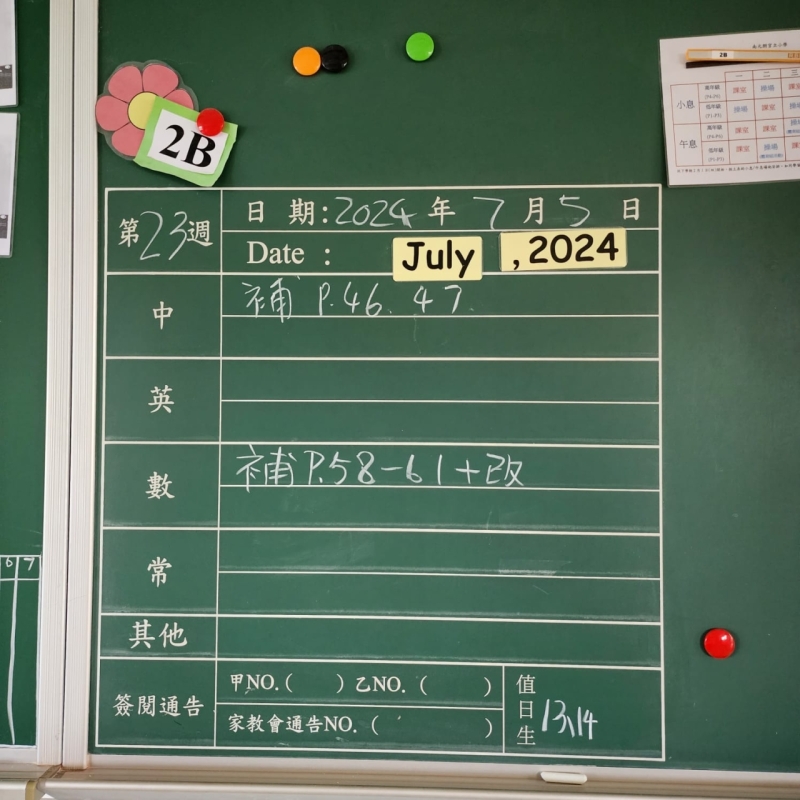 2B
第23週
日 期：2024 年 7 月 5 日
Date : July , 2024
中
補 P.46、47.
英
數
補 P.58-61+改
常
其他
簽閱通告
甲NO.( ) 乙NO. ( )
家教會通告NO. ( )
值日生
13、14
6 7
2B
一 二 三
小息
午息
課室 操場 課室
操場 課室 操場
課室 課室
課室 操場 課室